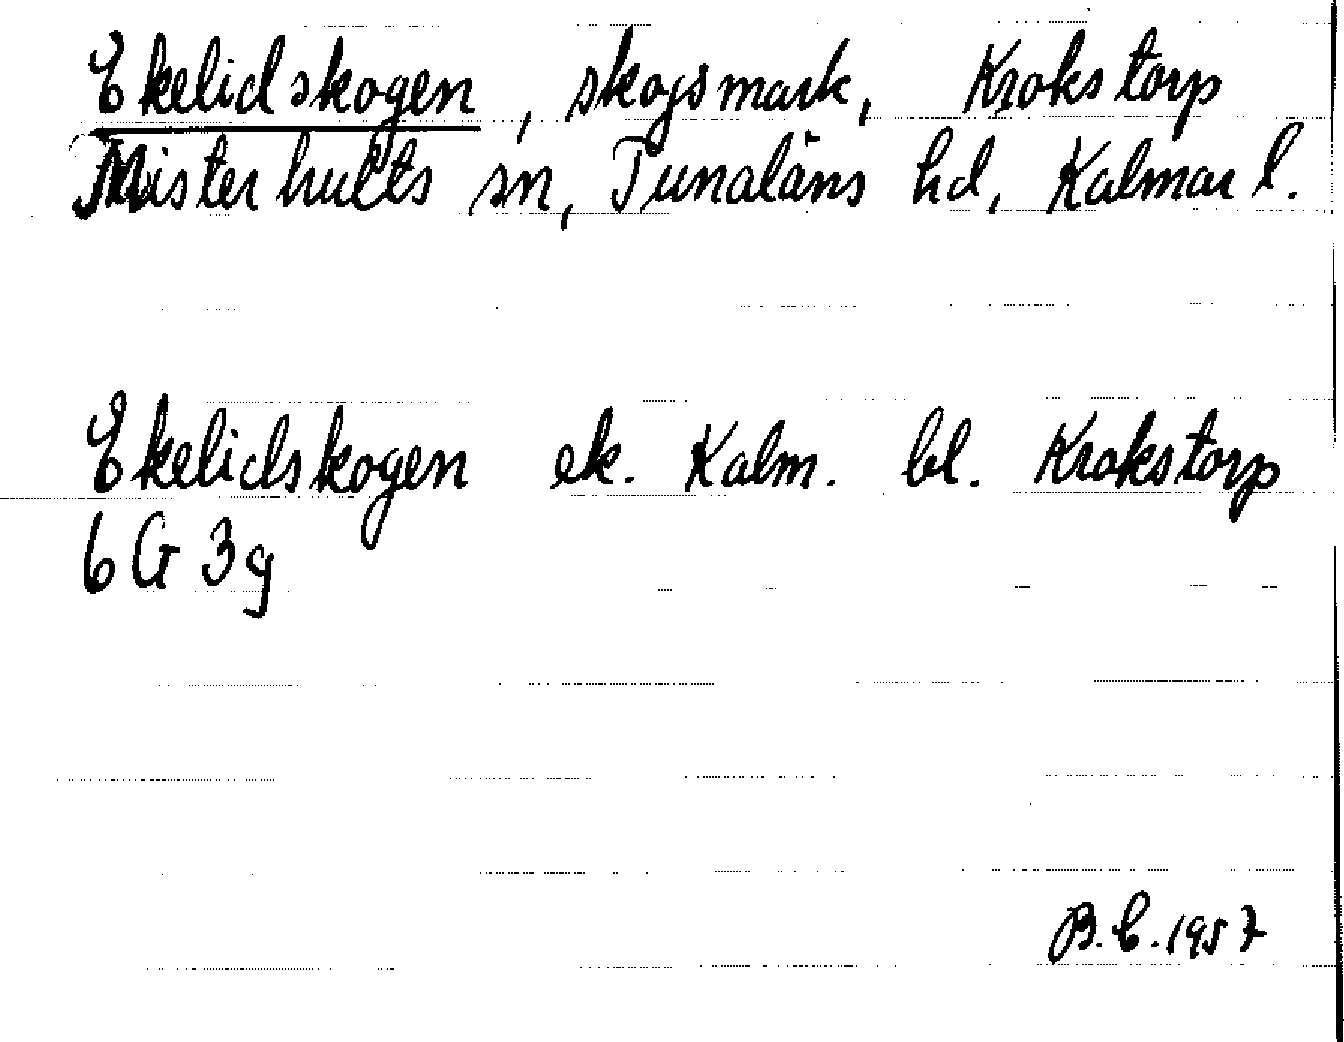 Ekelidskogen, skogsmark, Krokstorp
Misterhults sn, Tunaläns hd, Kalmar l.
Ekelidskogen ek. Kalm. bl. Krokstorp
6G 3g
B.C. 1957